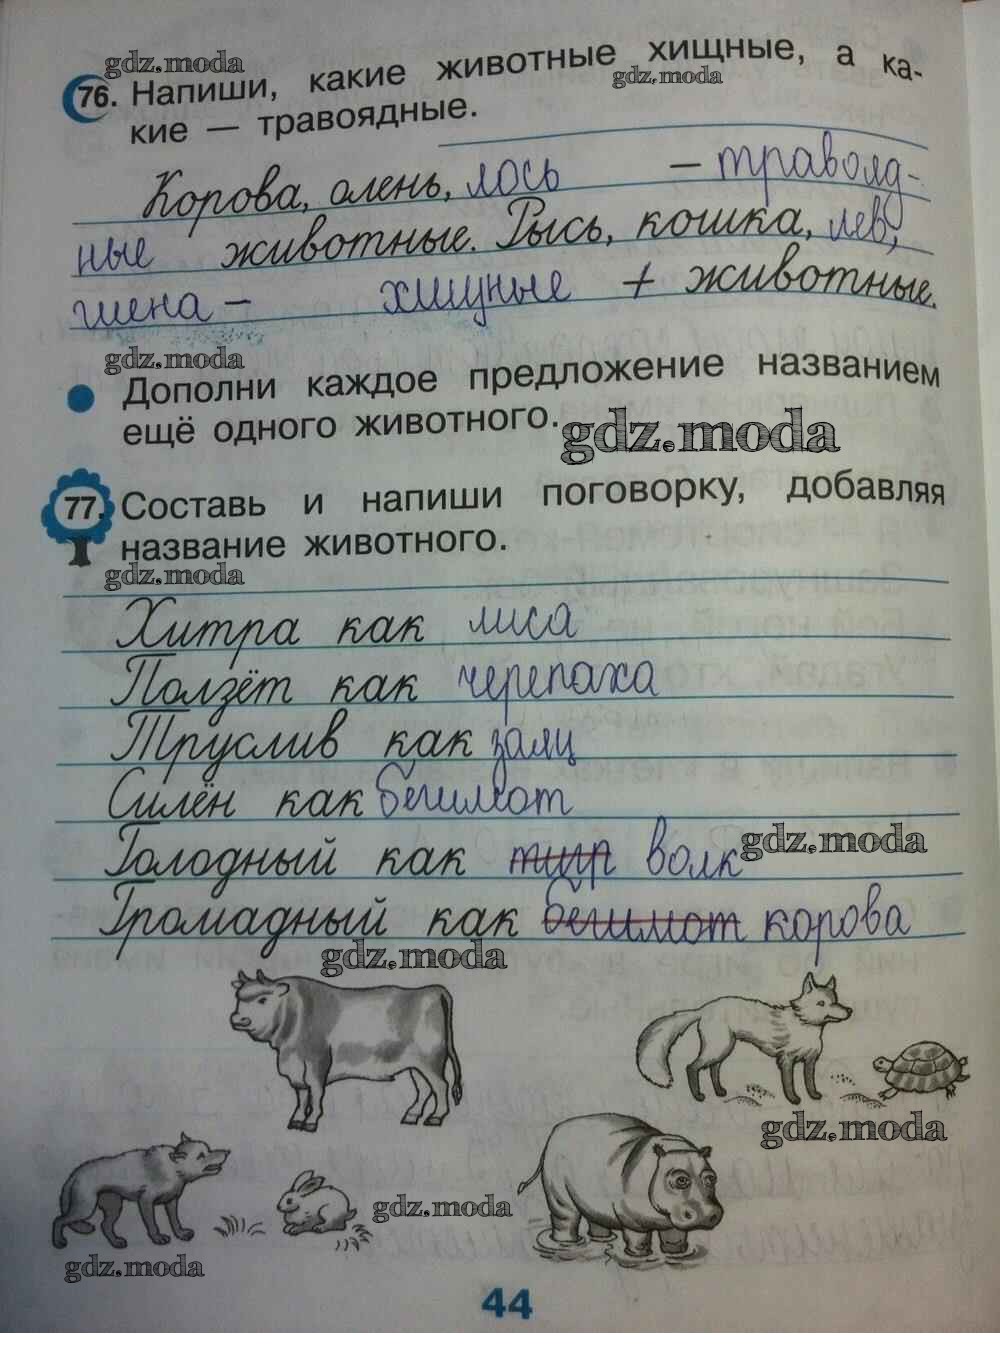 gdz.moda
76. Напиши, какие животные хищные, а ка-
gdz.moda
кие — травоядные.
Корова, олень, лось — травояд-
ные животные. Рысь, кошка, лев,
гиена — хищные + животные.
gdz.moda
Дополни каждое предложение названием
ещё одного животного.
gdz.moda
77. Составь и напиши поговорку, добавляя
название животного.
gdz.moda
Хитра как лиса
Ползёт как черепаха
Труслив как заяц
Силён как бегимот
Голодный как тигр волк
gdz.moda
Громадный как бегимот корова
gdz.moda
gdz.moda
gdz.moda
gdz.moda
44